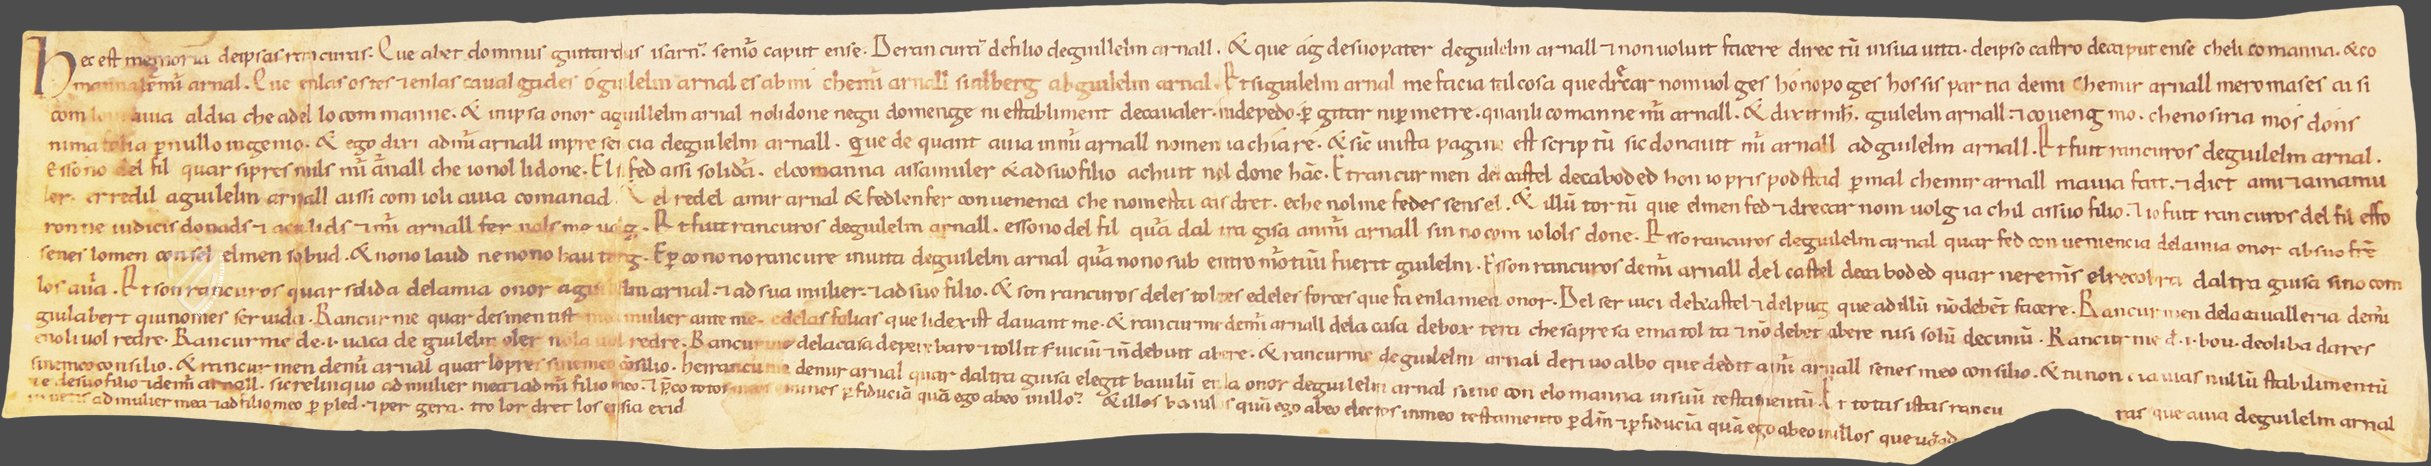 Hec est memoria de ipsas rancuras. Que abet domnus guitardus isarn̄. seniō caput ense. De rancurā de filio de guillelm arnall. & que ág de suo pater de guilelm arnall & non voluit facere directū in sua vita. de ipso castro de caput ense che li comanna. & co
manna lē mīr arnal. Que en las ostes & en las cavalgades ó guilelm arnal es ab mi chemīr arnall si alberg ab guilelm arnal. Et si guilelm arnal me facia tal cosa que dreçar nom volges hó no poges hossis partia de mi chemir arnall mero mases cu si
com lo avia al dia che ad el lo commanne. & in ipsa onor a guillelm arnal no li done negu domenge ni establiment de cavaler. ni de pedo. p gitar ni p metre. quan li comanne mīr arnall. & dixit mih. guilelm arnall. & coveng mo. che no siria mos dons
ni ma tolia p nullo ingenio. & ego dixi ad mīr arnall in presencia de guilelm arnall. Que de quant avia in mīr arnall no menia chi a re. & sic in ista pagina est scriptū sic donavit mīr arnall ad guilelm arnall. Et fuit rancuros de guilelm arnal.
Esso no del fil quar si pres mīr arnall che io nol li done. El fed assi solidar. el comanna a ssa muler & ad suo filio a chuit nol done hāc. Et rancur men del castel de caboded hon io pris podstad p mal chemir arnall mavia fait. & dict a mi & a ma mu
ler. e redil a guilelm arnall aissi com io li avia comanad. & el redel a mir arnal & fed len fer convenencia che nom esta a is dret. e che nol me fedes sens el. & illū tortū que el men fed & dreçar nom volg ia chil a ssuo filio. & io fuit rancuros del fil esso
ronne iudicis donads & mīr arnall fer nols me volg. Et fuit rancuros de guilelm arnall. esso no del fil quā dal tra gisa a mīr arnall sin no com io lols done. Esso rancuros de guilelm arnal quar fed conveniencia de la mia onor ab suo frē
senes lo men consel el men sobud. & no no laud ne no no hautorg. E p co no no rancure in vita de guilelm arnal quā no no sub entro mortuū fuerit guilelm. Esson rancuros de mīr arnall del castel de caboded quar ne rems el recobra daltra guisa sino com
los avā. Et son rancuros quar solida de la mia onor a guilelm arnal. & ad sua mulier. & ad suo filio. & son rancuros de les toltes e de les forces que fa en la mea onor. Del servici del castel & del pug que ad illū no debēt facere. Rancur men de la cavalleria de mīr
guilabert qui no mes servida. Rancur me quar desmentist ma mulier ante me. e de las folias que li dexist davant me. & rancur me de mīr arnall de la casa de bor tera che sa presa e ma tolta & no debet abere nisi solū decimū. Rancur me d.1. bou. de oliba dares
e noli vol redre. Rancur me de.1. vaca de guilelm oler no la vol redre. Rancur me de la casa de pere baro & tollit sviciū & n debuit abere. & rancur me de guilelm arnal de rivo albo que dedit a mīr arnall senes meo consilio. & tu non avias nullū stabilimentū
sine meo consilio. & rancur men de mīr arnal quar lo pres sine meo consilio. hei rancur me de mir arnal quar daltra guisa elegit baiulū en la onor de guilelm arnal si no con elo manna in suū testamentū. Et totas istas rancu ras que avia de guilelm arnal
& e de suo filio & de mīr arnall. sic relinquo ad mulier mea & ad mī filio meo. & p co totos omnes p fiduciā quā ego abeo in illo. & illos baiulos quā ego abeo electos in meo testamento p dm & p fiduciā quā ego abeo in illos que
ad mulier mea & ad filio meo p pled. & per gera. tro lor dret los en sia exid